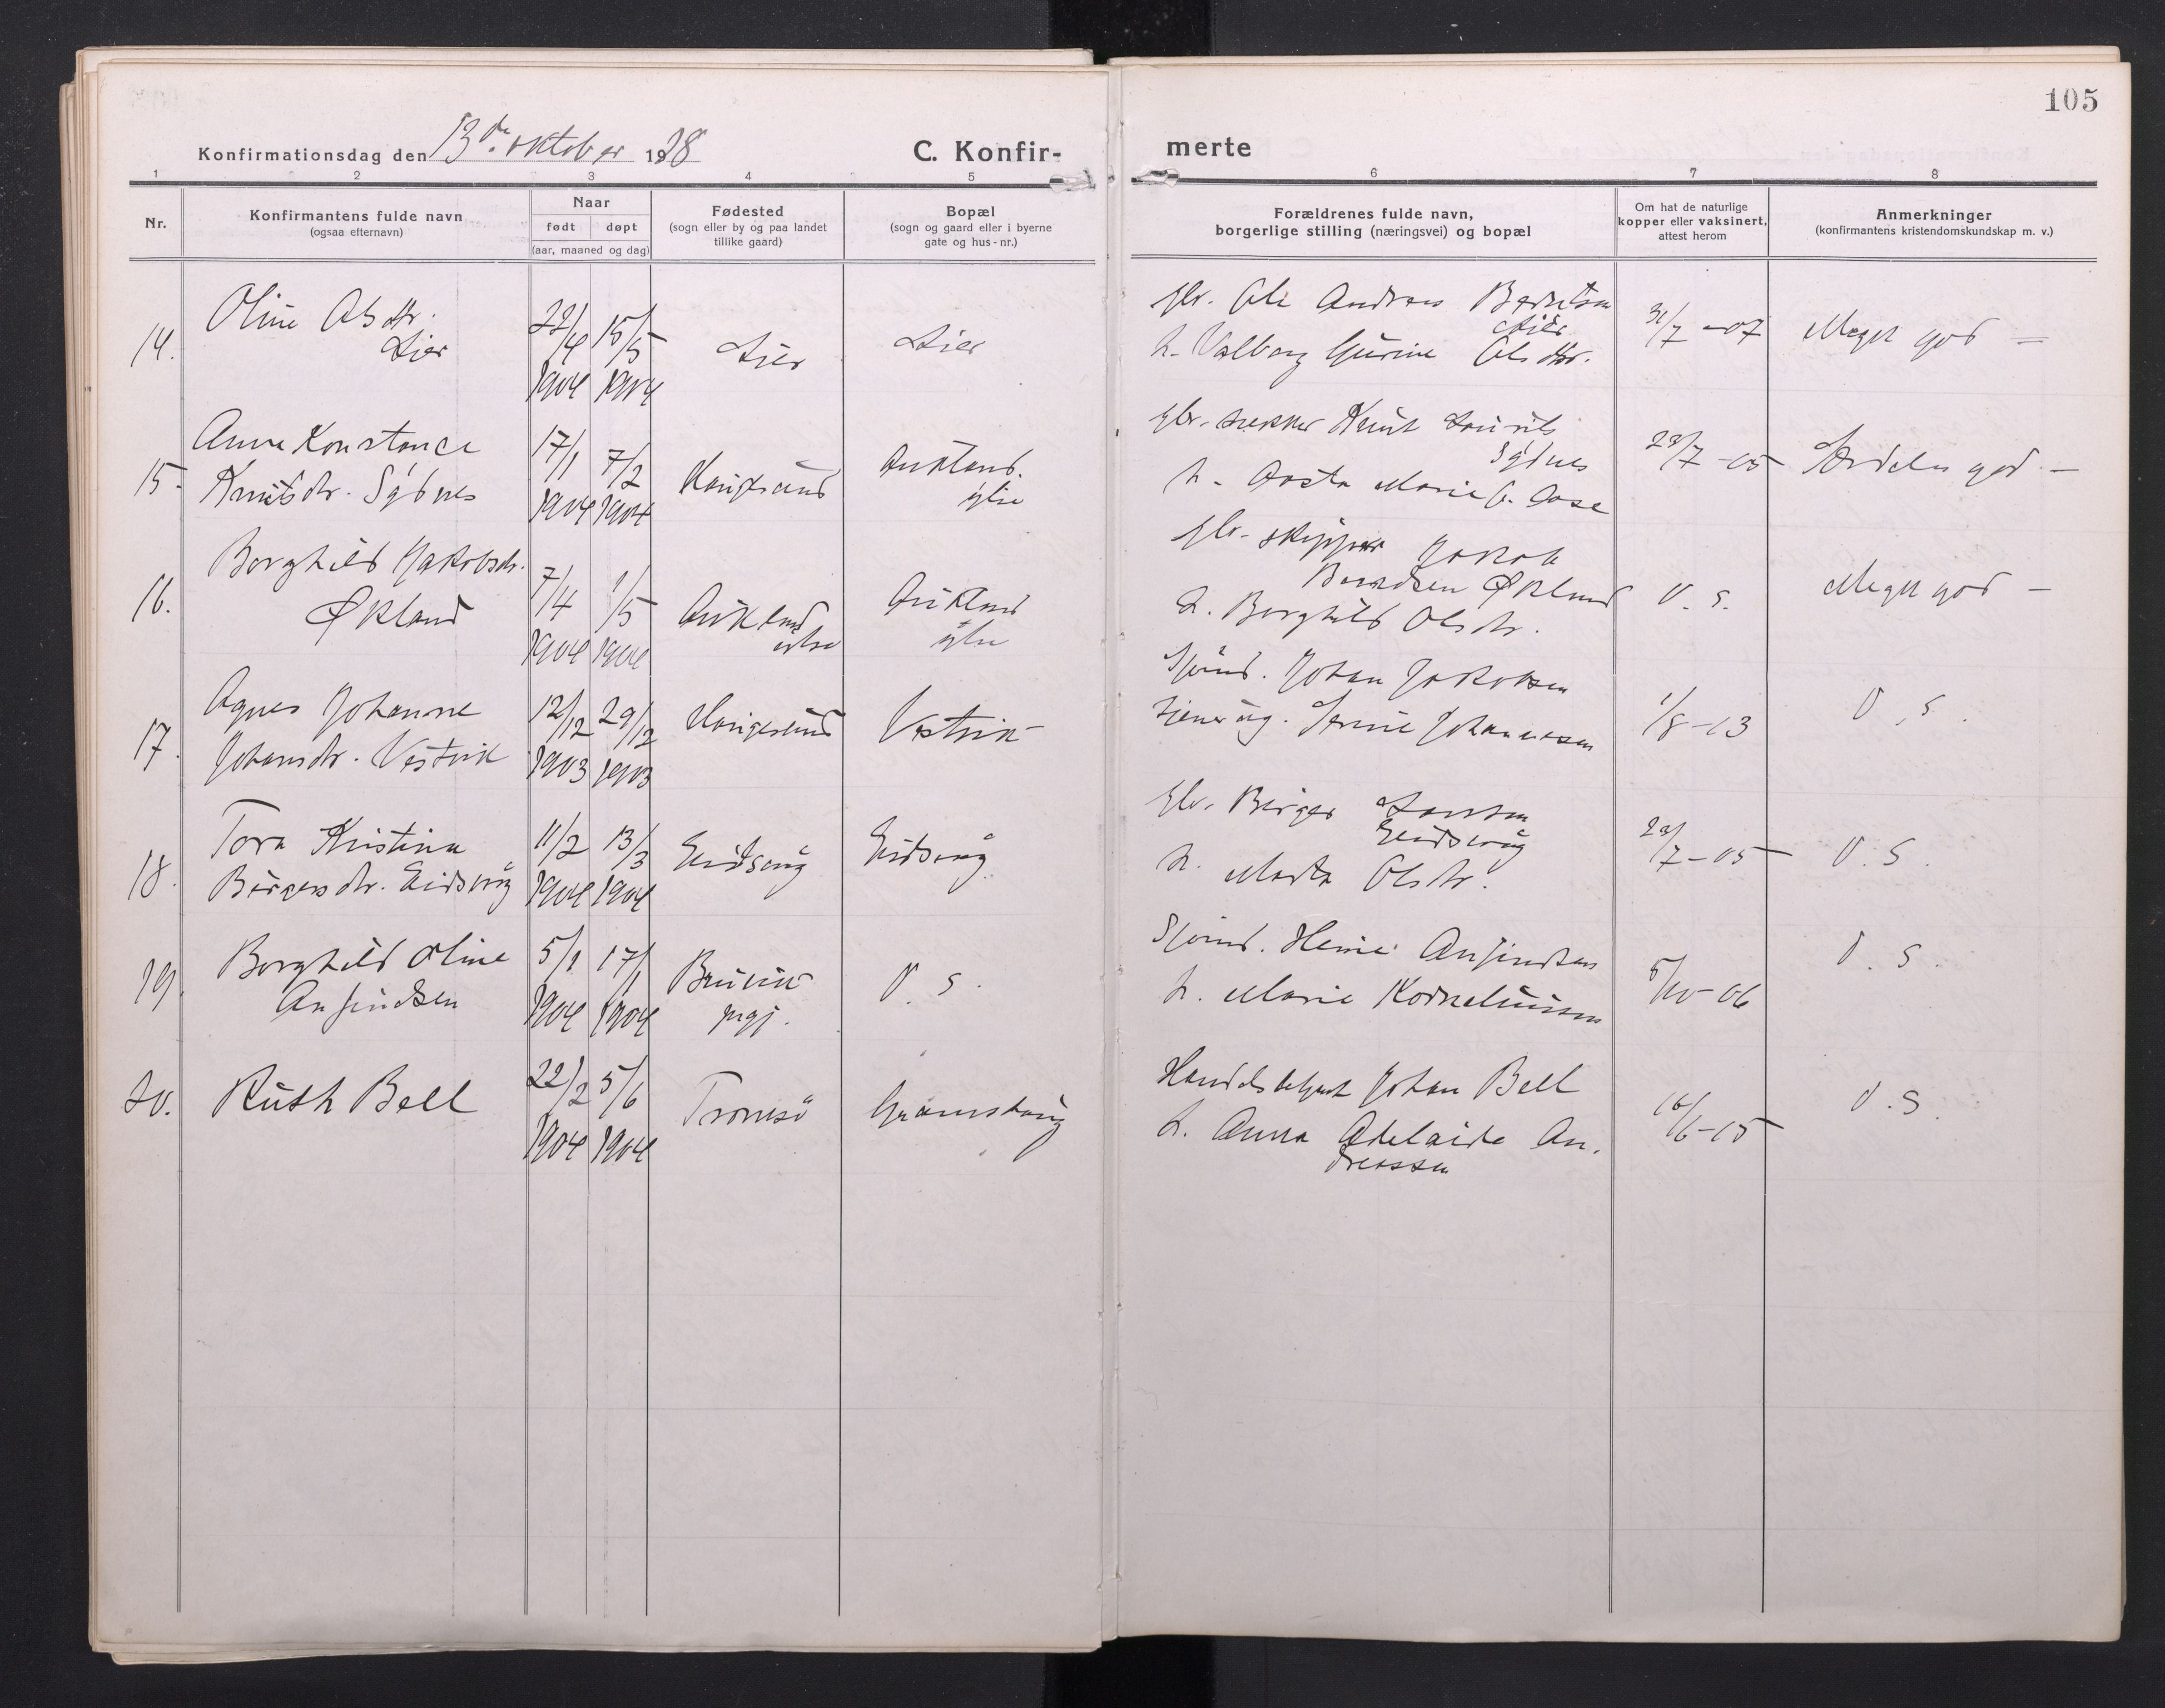 105
Konfirmationsdag den 13de oktober 1918
C. Konfir-
merte
1 2 3 4 5 6 7 8
Nr.
Konfirmantens fulde navn
(ogsaa efternavn)
Naar
født døpt
(aar, maaned og dag)
Fødested
(sogn eller by og paa landet
tillike gaard)
Bopæl
(sogn og gaard eller i byerne
gate og hus-nr.)
Forældrenes fulde navn,
borgerlige stilling (næringsvei) og bopæl
Om hat de naturlige
kopper eller vaksinert,
attest herom
Anmerkninger
(konfirmantens kristendomskundskap m. v.)
14.
Oline Olsdtr.
Lier
22/4 15/5
1904 1904
Lier
Lier
Gbr. Ole Andreas Berntsen
Lier
h. Valborg Gurine Olsdtr.
31/7 -07
Meget god -
15.
Anna Konstance
Knutsdtr. Sydnes
17/1 7/2
1904 1904
Haugesund
Aukland
ytre
Gbr. Knut Laurits
Sydnes
h. Marie
29/7 -05
Særdeles god -
16.
Borghild Jakobsdtr.
Økland
7/4 1/5
1904 1904
Aukland
ytre
Aukland
ytre
Gbr. skipper Jakob
Berntsen Økland
h. Borghild Olsdtr.
D. S.
Meget god -
17.
Agnes Johanne
Johansdtr. Vestvik
12/12 29/12
1903 1903
Haugesund
Vestvik
Sjømd. Johan Jakobsen
Johannesen
1/8 -13
D. S.
18.
Tora Kristine
Bergersdtr. Eidsvåg
11/2 13/3
1904 1904
Eidsvåg
Eidsvåg
Gbr. Berger Larsen
Eidsvåg
h. Marta Olsdtr.
29/7 -05
D. S.
19.
Borghild Oline
Anfindsen
5/1 17/1
1904 1904
Bruvik
prgj.
D. S.
Sjømd. Anfindsen
h. Marie Korneliussen
5/10 -06
D. S.
20.
Ruth Bell
22/2 5/6
1904 1904
Tromsö
Johan Bell
h. Anna Adelaide An-
dreassen
16/6 -15
D. S.